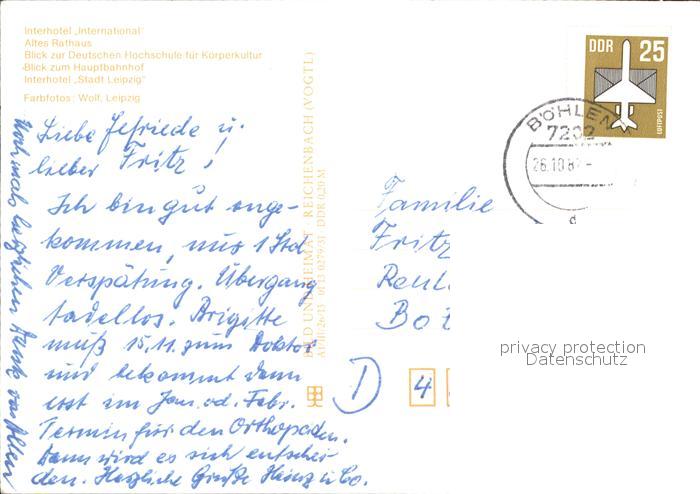 Interhotel „International"
Altes Rathaus
Blick zur Deutschen Hochschule für Körperkultur
Blick zum Hauptbahnhof
Interhotel „Stadt Leipzig"
Farbfotos: Wolf, Leipzig
DDR 25
LUFTPOST
BÖHLEN
7202
26.10.8
d
BILD UND HEIMAT REICHENBACH (VOGTL)
DDR 0,20 M
Liebe Jefriede u.
lieber Fritz!
Ich bin gut ange-
kommen, nur 1 Std
Verspätung. Übergang
tadellos. Brigitte
muß 15.11. zum Doktor
und bekommt dann
erst im Jan. od. Febr.
Termin für den Orthopäden.
Dann wird es sich entschei-
den. Herzliche Grüße Heinz u. Co.
Nochmals herzlichen Dank von Allen
Familie
Fritz
Reul
Bot
D 4
privacy protection
Datenschutz